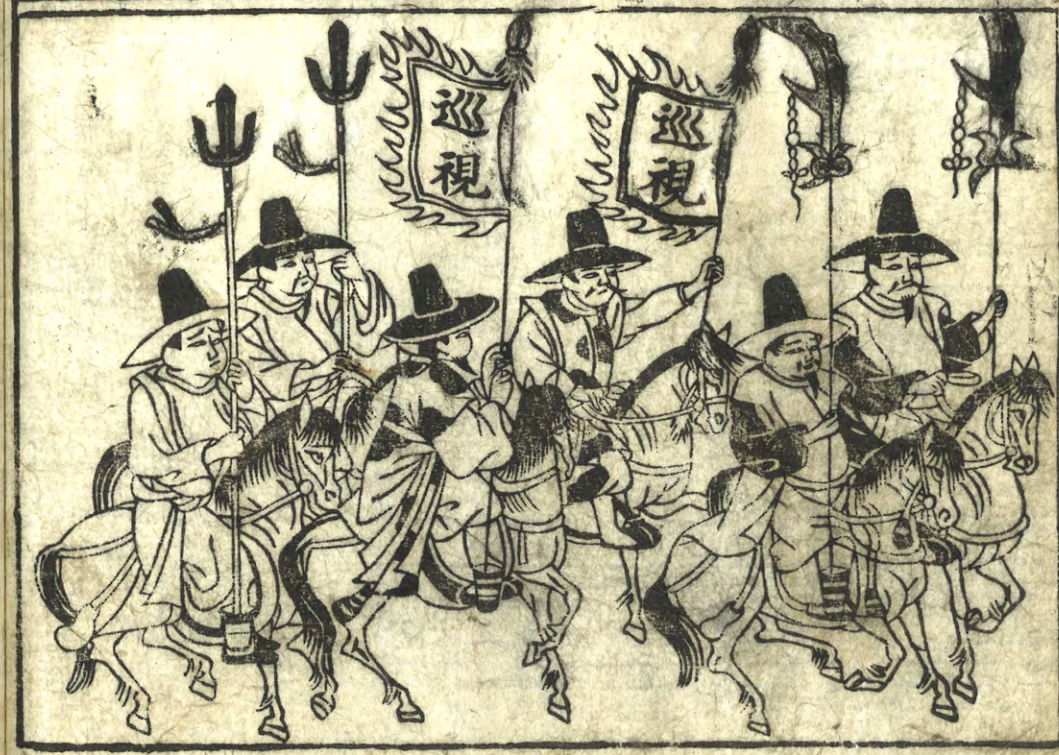 巡視
巡視